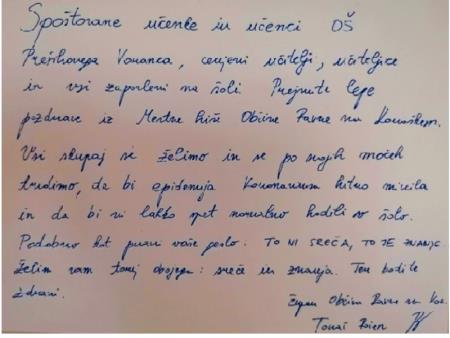 Spoštovane učenke in učenci OŠ
Prežihovega Voranca, cenjeni učitelji, učiteljice
in vsi zaposleni na šoli. Prejmite lepe
pozdrave iz Mestne hiše Občine Ravne na Koroškem.
Vsi skupaj si želimo in se po svojih močeh
trudimo, da bi epidemija koronavirusa hitro minila
in da bi vi lahko spet normalno hodili v šolo.
Podobno kot pravi vaše geslo: TO NI SREČA, TO JE ZNANJE.
Želim vam torej obojega: sreče in znanja. Ter bodite
zdravi.
Župan Občine Ravne na Kor.
Tomaž Rožen